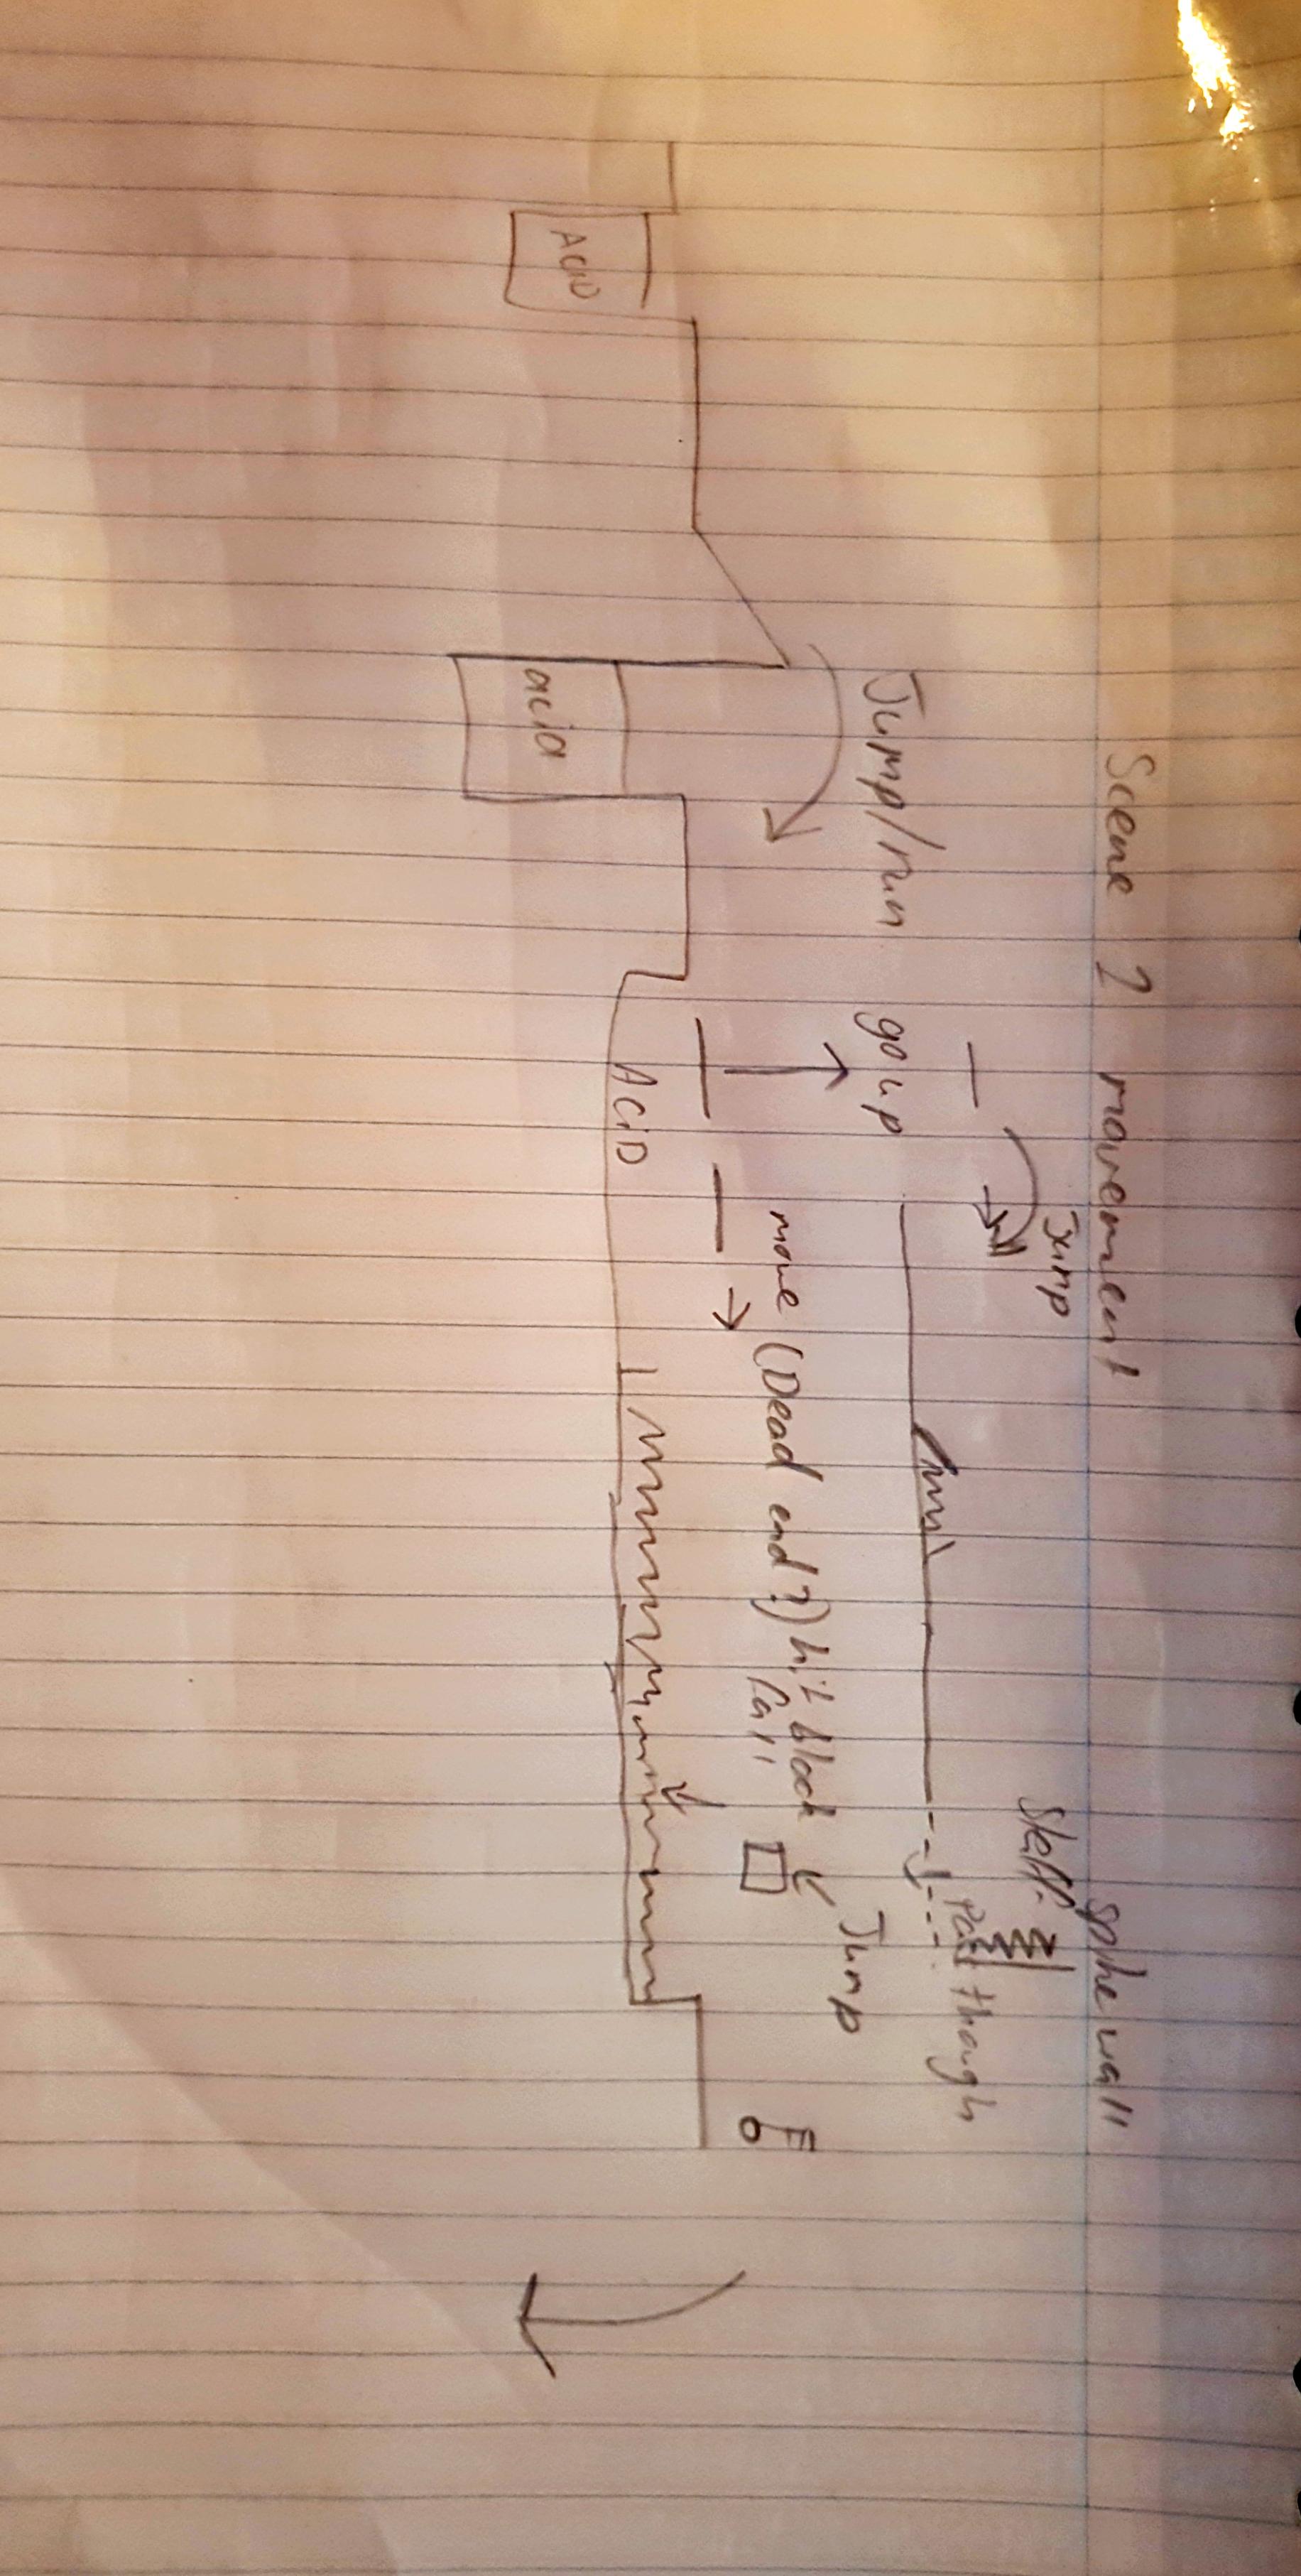 Scene 2 movement
spike wall
Jump
Staff
Pass though
Jump/run
go up
Jump
move (Dead end?) hit block
fall
ACiD
ACiD
acid